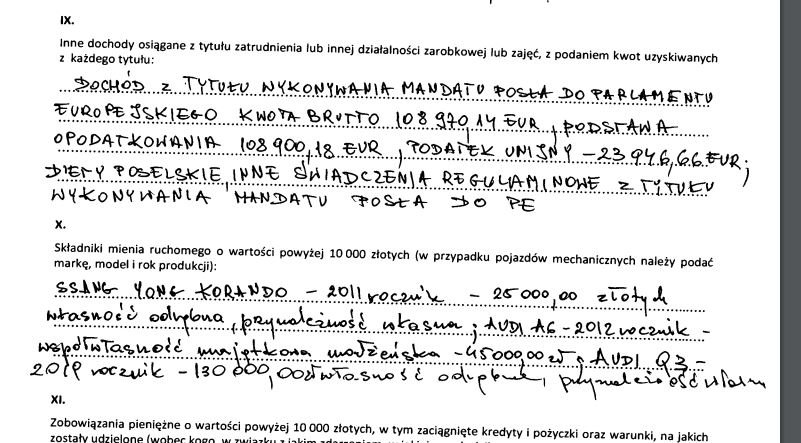 IX.
Inne dochody osiągane z tytułu zatrudnienia lub innej działalności zarobkowej lub zajęć, z podaniem kwot uzyskiwanych
z każdego tytułu:
DOCHÓD Z TYTUŁU WYKONYWANIA MANDATU POSŁA DO PARLAMENTU
EUROPEJSKIEGO KWOTA BRUTTO 108 970,14 EUR, PODSTAWA
OPODATKOWANIA 108 900,18 EUR, PODATEK UNIJNY - 23 946,66 EUR;
DIETY POSELSKIE, INNE ŚWIADCZENIA REGULAMINOWE Z TYTUŁU
WYKONYWANIA MANDATU POSŁA DO PE
X.
Składniki mienia ruchomego o wartości powyżej 10 000 złotych (w przypadku pojazdów mechanicznych należy podać
markę, model i rok produkcji):
SSANG YONG KORANDO - 2011 rocznik - 25 000,00 złotych
własność odrębna, przynależność własna; AUDI A6 - 2012 rocznik -
współwłasność majątkowa małżeńska - 45000,00 zł; AUDI Q3 -
2019 rocznik - 130 000,00 zł własność odrębna, przynależność własna
XI.
Zobowiązania pieniężne o wartości powyżej 10 000 złotych, w tym zaciągnięte kredyty i pożyczki oraz warunki, na jakich
zostały udzielone (wobec kogo, w związku z jakim